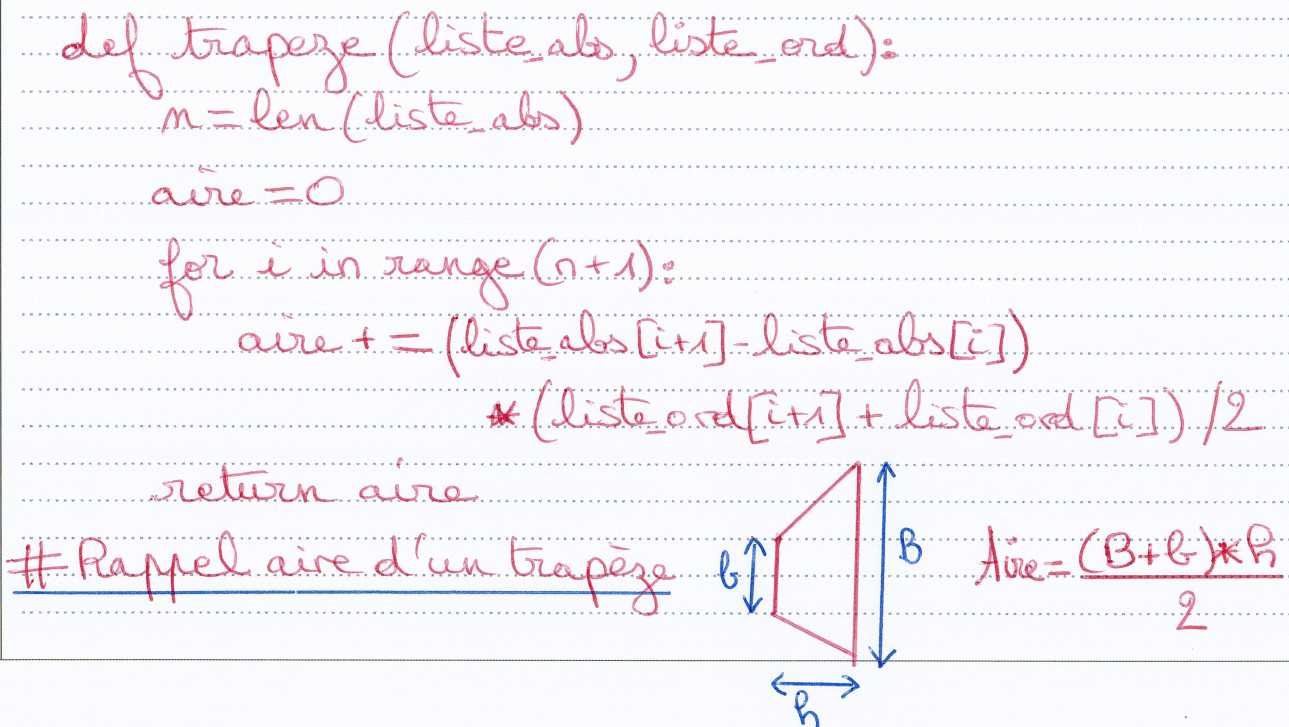 def trapeze(liste_abs, liste_ord):
n=len(liste_abs)
aire=0
for i in range(n+1):
aire+=(liste_abs[i+1]-liste_abs[i])
*(liste_ord[i+1]+liste_ord[i])/2
return aire
# Rappel aire d'un trapèze
b
B
h
Aire=(B+b)*h
2